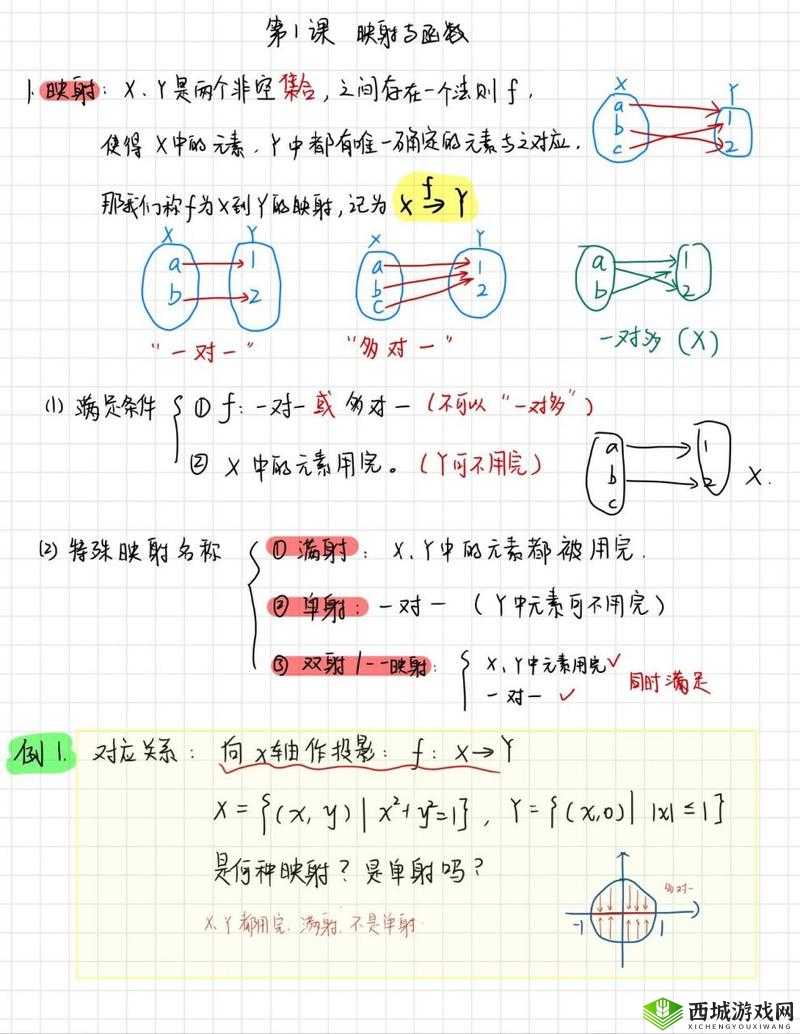 第1课 映射与函数
1. 映射: X、Y是两个非空集合, 之间存在一个法则f,
使得X中的元素, Y中都有唯一确定的元素与之对应,
那我们称f为X到Y的映射, 记为 X f→ Y
X Y
a 1
b 2
c
X Y
a 1
b 2
"一对一"
X Y
a 1
b 2
c
"多对一"
a 1
b 2
一对多 (X)
(1) 满足条件 { ① f: 一对一或多对一 (不可以"一对多")
② X中的元素用完。(Y可不用完)
a 1
b 2
c
X.
(2) 特殊映射名称 { ① 满射: X、Y中的元素都被用完.
② 单射: 一对一 (Y中元素可不用完)
③ 双射/一一映射: { X、Y中元素用完✓
一对一 ✓
同时满足
例1. 对应关系: 向x轴作投影: f: X→Y
X={(x, y)| x²+y²=1}, Y={(x,0)| |x|≤1}
是何种映射? 是单射吗?
X、Y都用完、满射、不是单射.
多对一
-1 1
西城游戏网
XICHENGYOUXIWANG